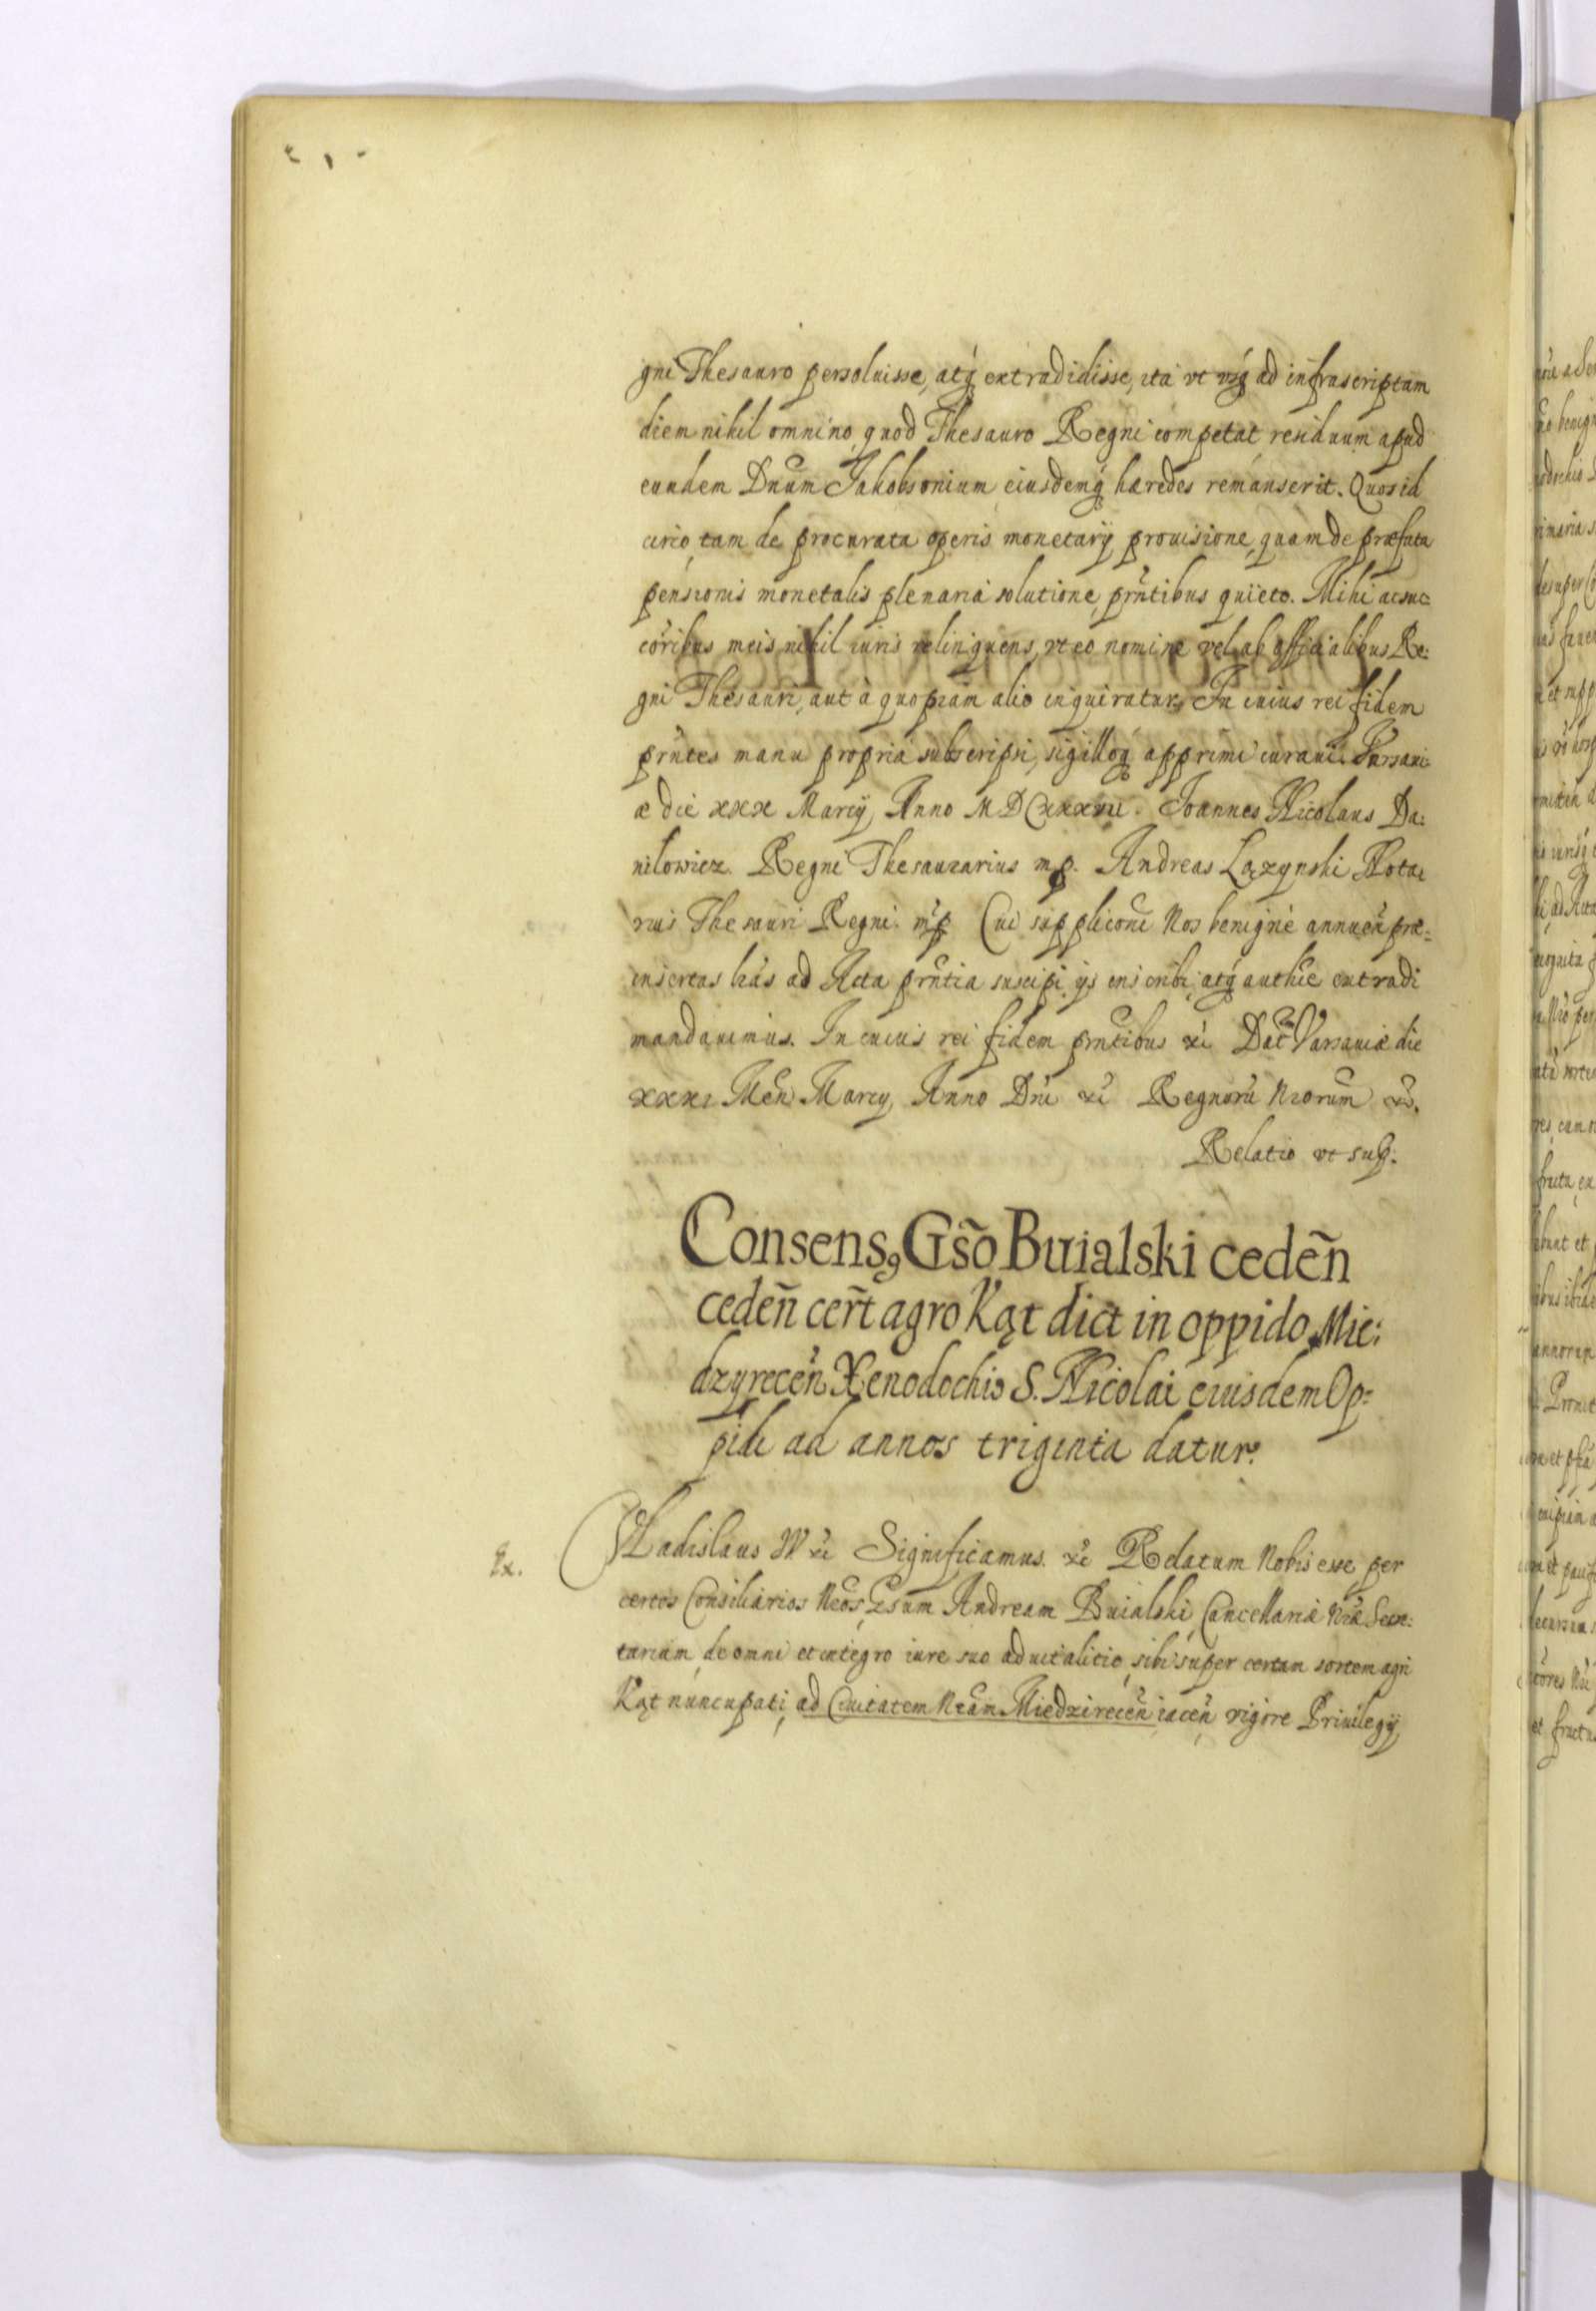 gni Thesauro persoluisse, atq́ extradidisse, ita vt vsq́ ad infrascriptam
diem nihil omnino, quod Thesauro Regni competat, residuum apud
eundem Dnum Jakobsonium eiusdemq́ hæredes remanserit. Quos id
circo, tam de procurata operis monetarij prouisione, quam de præfata
pensionis monetalis plenaria solutione, prntibus quieto. Mihi ac suc=
coribus meis nihil iuris relinquens, vt eo nomine vel ab officialibus Re:
gni Thesauri, aut à quopiam alio inquiratur. In cuius rei fidem
prntes manu propria subscripsi, sigilloq́ apprimi curaui. Varsaui
æ die xxx Marcij, Anno MDCxxxvii. Joannes Nicolaus Da:
nilowicz. Regni Thesaurarius mp. Andreas Lązynski Nota:
rius Thesauri Regni. mp Cui suppliconi Nos benignè annuen præ=
insertas lras ad Acta prntia suscipi, ijs inscribi, atq́ authce extradi
mandauimus. In cuius rei fidem prntibus &c Dat Varsauiæ die
xxxi Men Marcij, Anno Dni &c Regnoru Nrorum &c.
Relatio vt sup.
Consens9 Gso Buialski ceden
ceden cert agro Kąt dict in oppido Mie:
dzyrecen Xenodochio S. Nicolai eiusdem Op=
pidi ad annos triginta datur.
Ex.
Vladislaus IV &c Significamus. &c Relatum Nobis esse per
certos Consiliarios Nros, Gsum Andream Buialski, Cancellariæ Nræ Secre:
tarium, de omni et integro iure suo aduitalitio, sibi super certam sortem agri
Kąt nuncupati, ad Ciuitatem Nram Miedzirecen iacen vigore Priuilegij